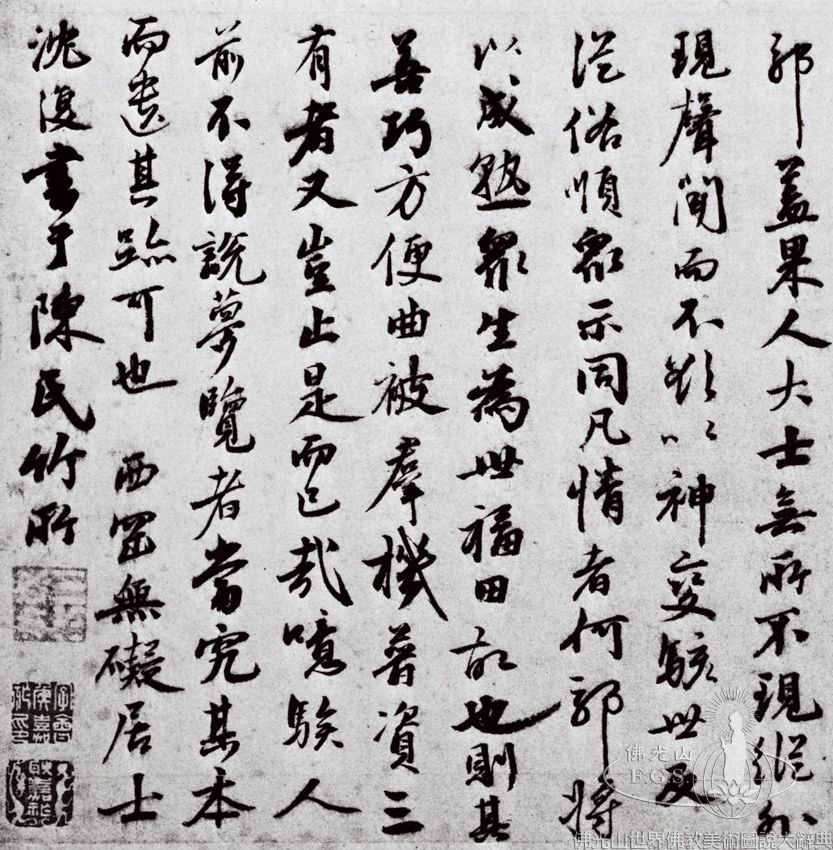 耶蓋果人大士無所不現縱外
現聲聞而不欲以神變駭世反
從俗順眾示同凡情者何耶將
以成熟眾生為世福田故也則其
善巧方便曲被羣機普資三
有者又豈止是而已哉噫騃人
前不得說夢覽者當究其本
而遺其跡可也 西岡無礙居士
沈復書于陳民竹所
佛光山
F.G.S.
佛光山世界佛教美術圖說大辭典